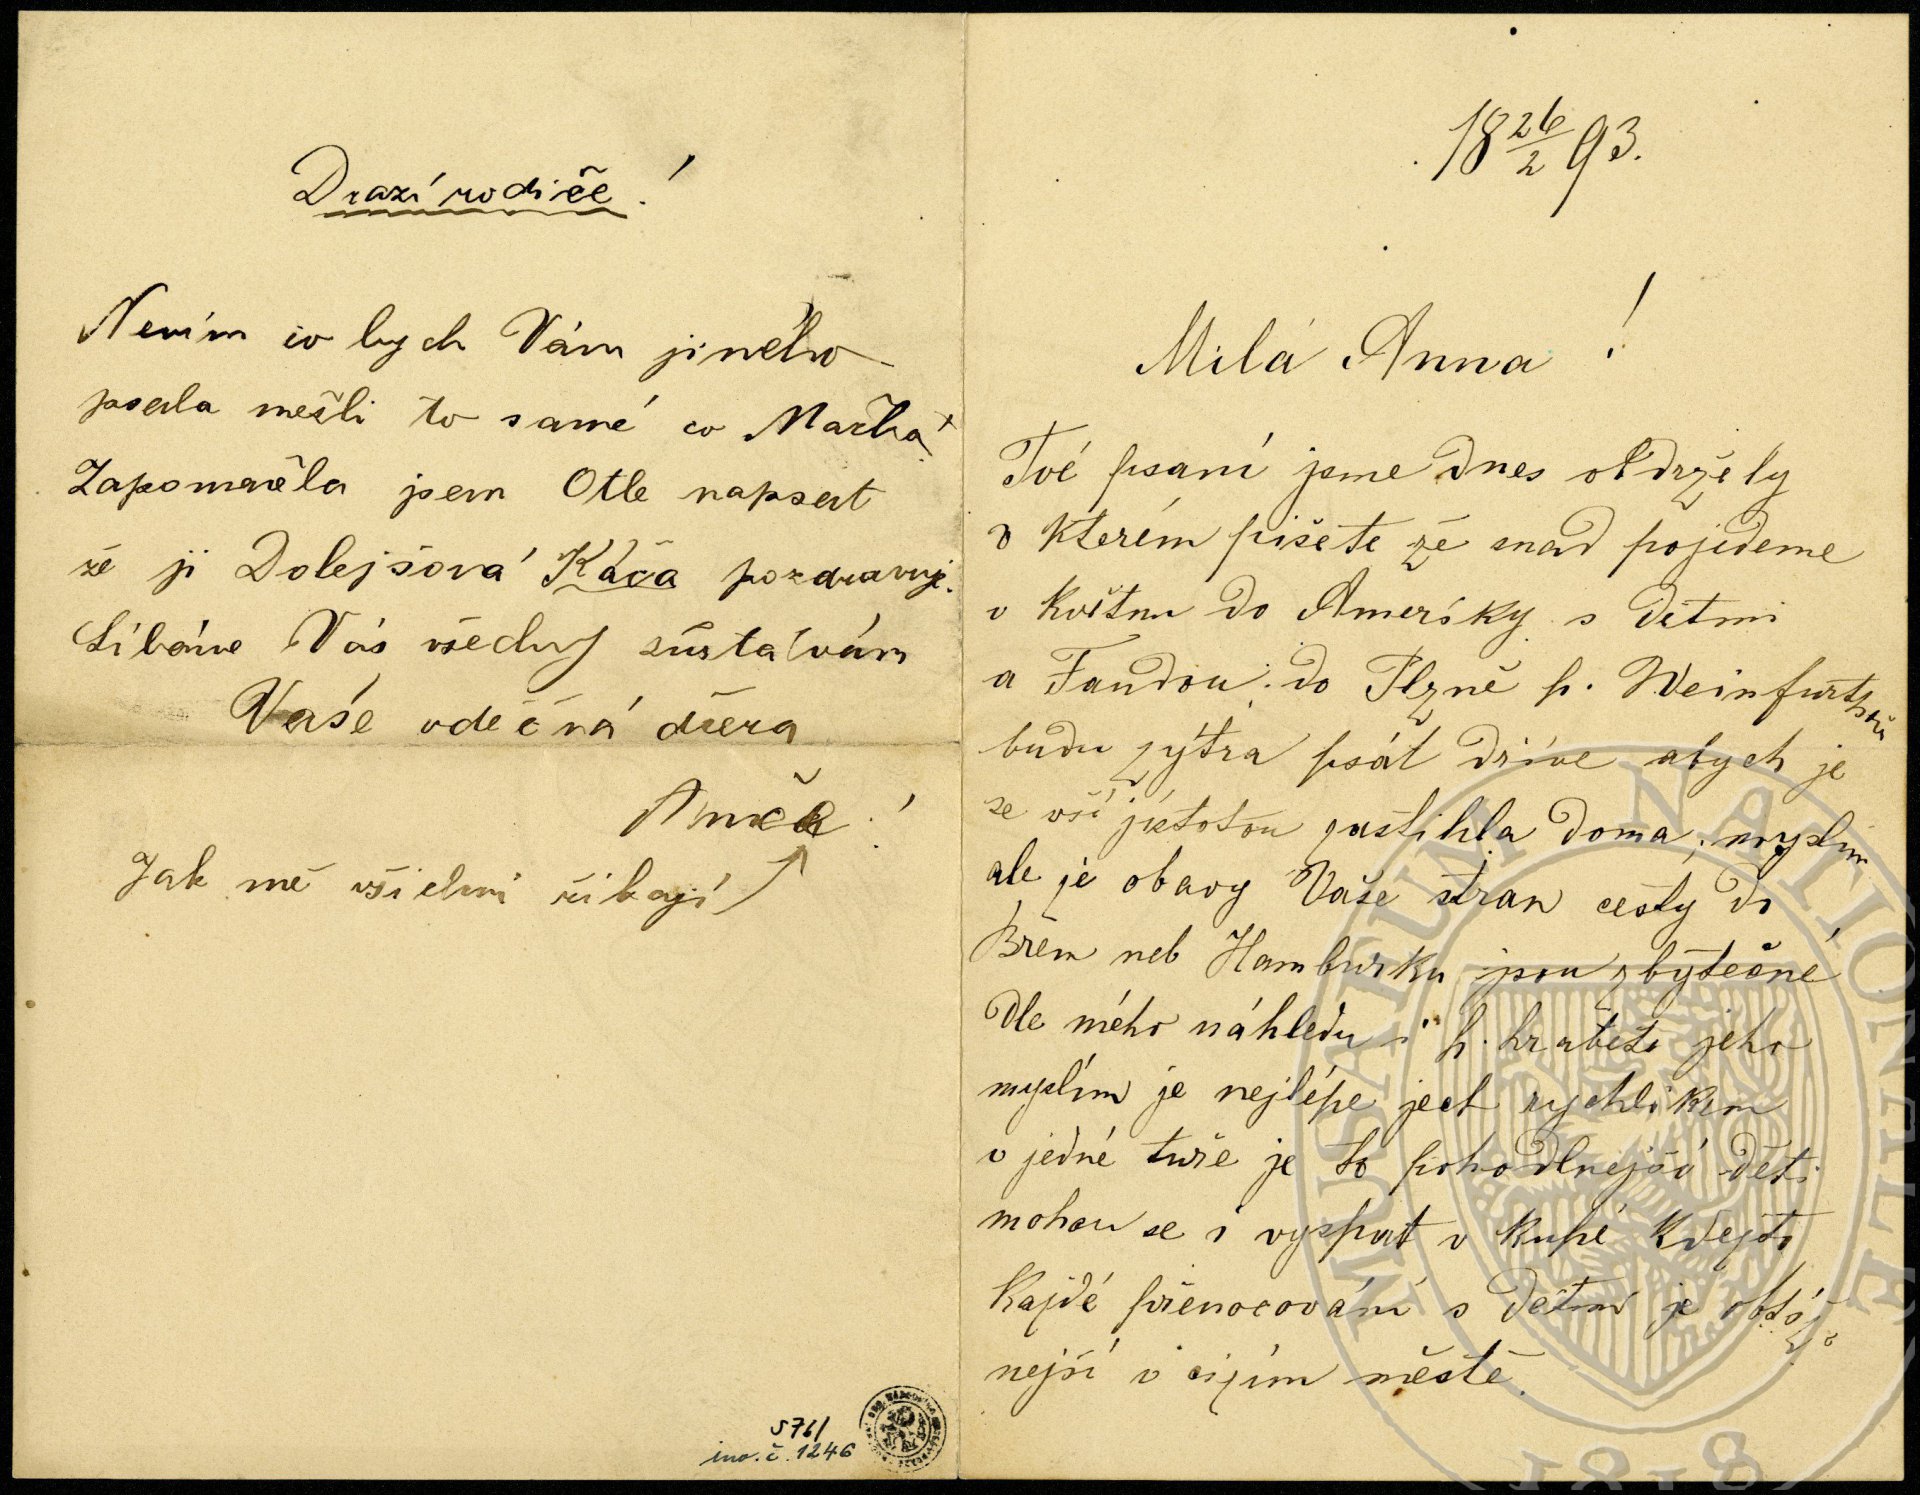 Drazí rodiče!
Nevím co bych Vám jiného
psala nešli to samé co Mařka
Zapomněla jsem Otle napsat
že ji Dolejšová Káča pozdravuje.
Líbáme Vás všechny zůstávám
Vaše vděčná dcera
Anča!
Jak mě všichni říkají
576/
inv. č. 1246
18 26/2 93.
Milá Anna!
Tvé psaní jsme dnes obdržely
v kterém pišete že snad pojedeme
v květnu do Ameriky s dětmi
a Fandou. do Plzně p. Weinfurt
budu zýtra psát dříve abych je
se vší jistotou zastihla doma, myslím
ale je obavy Vaše stran cesty do
Brém neb Hamburku jsou zbytečné
dle mého náhledu i p. hraběte jeho
myslím je nejlépe ject rychlíkem
v jedné tuře je to pohodlnejší děti
mohou se i vyspat v kupé kdejžto
každé přenocování s dětmi je obtíž
nejší v cizím městě.
MUSAEUM NATIONALE
1818